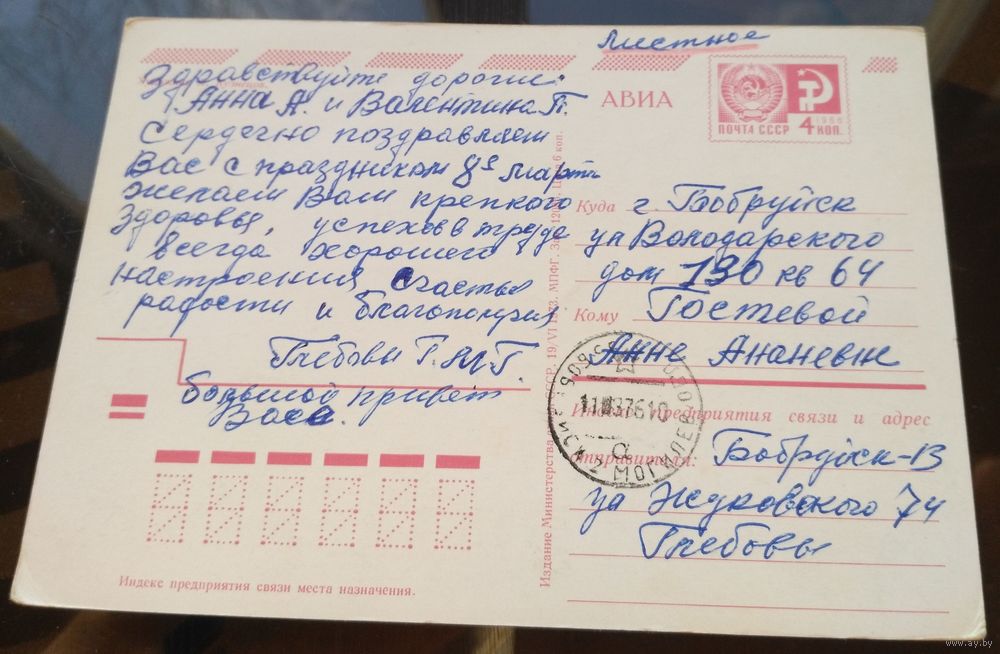 Местное
Здравствуйте дорогие
Анна А. и Валентина П.
Сердечно поздравляем
Вас с праздником 8ᵉ марта
желаем Вам крепкого
здоровья, успехов в труде
всегда хорошего
настроения счастья
радости и благополучия
Глебовы Г. М. Г.
большой привет
Васе.
АВИА
ПОЧТА СССР 4 КОП.
1966
Куда г. Бобруйск
ул Володарского
дом 130 кв 64
Кому Гостевой
Анне Ананевне
Индекс предприятия связи и адрес
отправителя: Бобруйск-13
ул Жуковского 74
Глебовы
Издание Министерства
19/VI 1973. МПФГ.
Цена 6 коп.
МОГИЛЕВ
Индекс предприятия связи места назначения.
www.ay.by